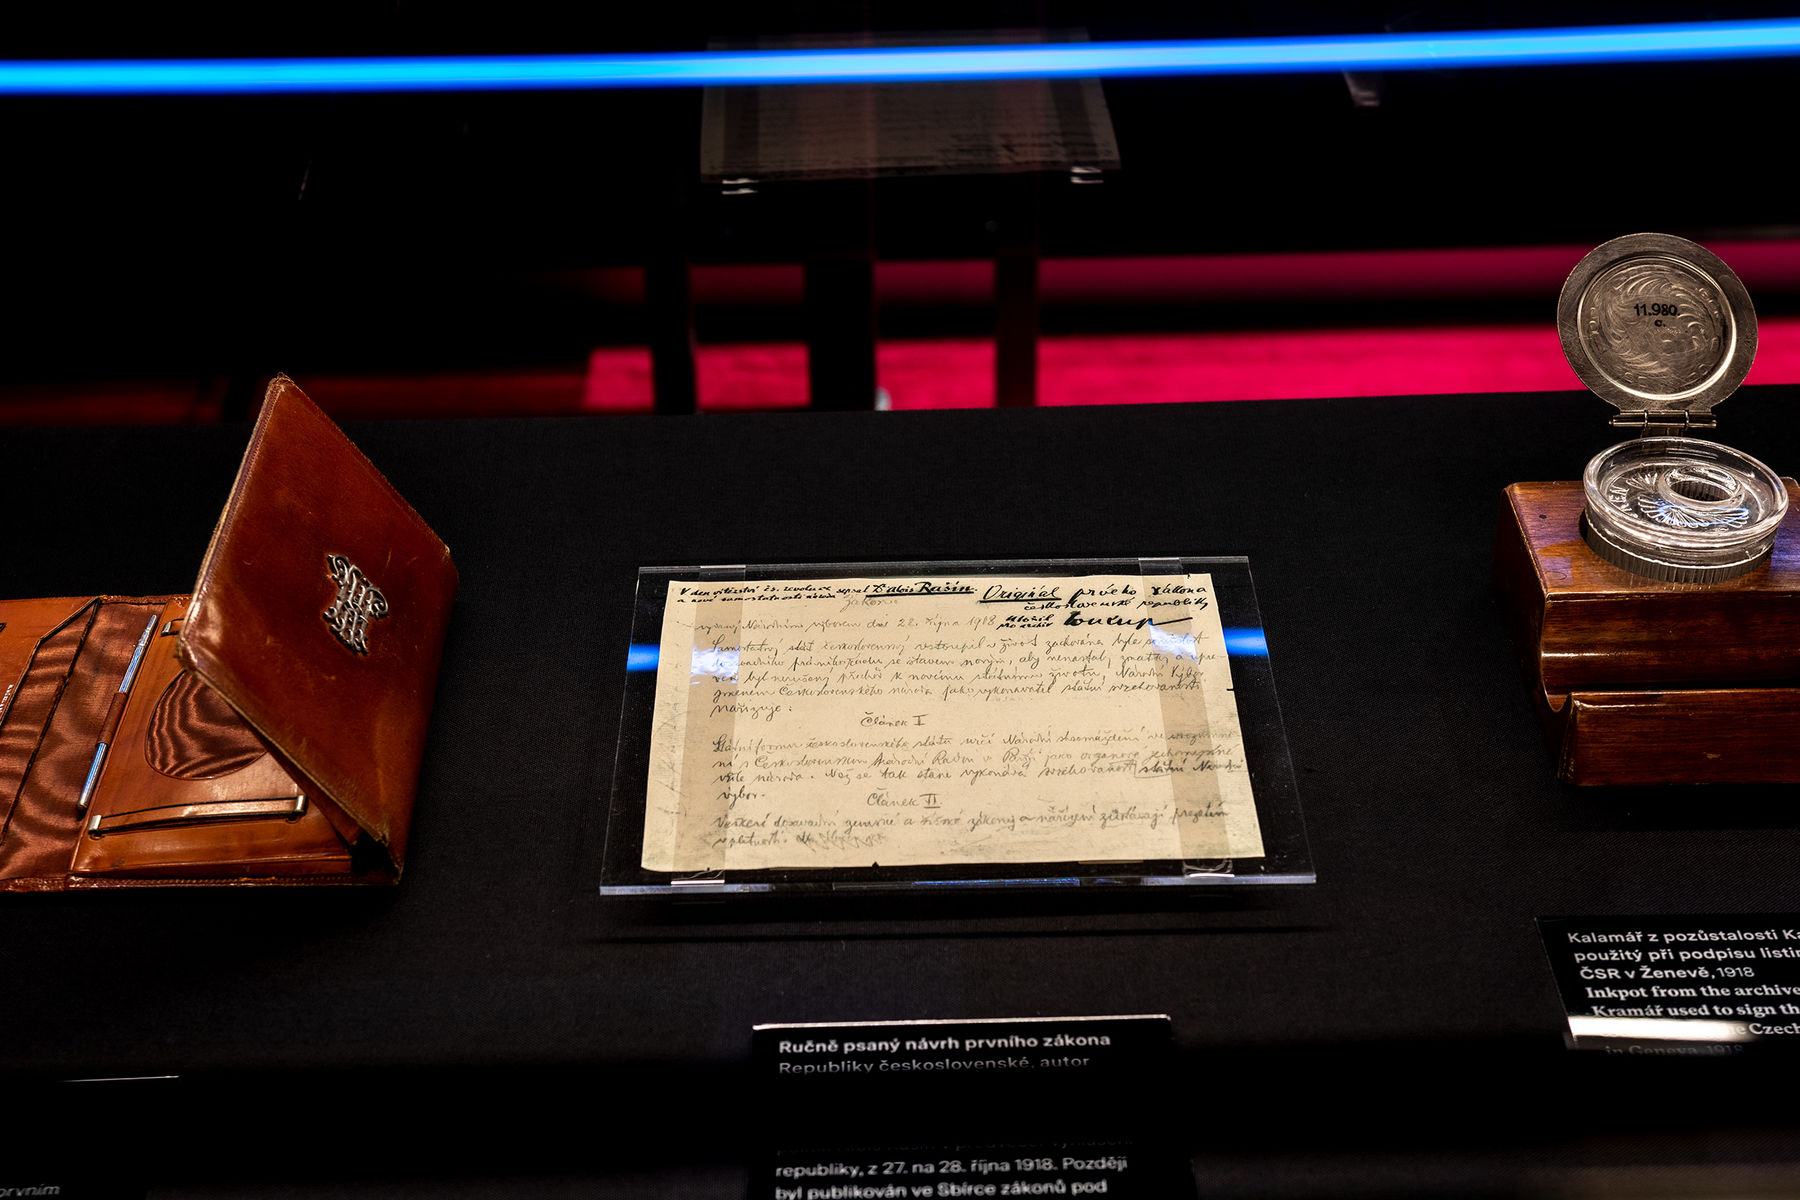 11.980
c.
V den vítězství čs. revoluce sepsal Dr Alois Rašín. Originál prvého zákona
a nové samostatnosti národa
československé republiky
Zákon
uložil
pro archiv
vydaný Národním výborem dne 28. října 1918
Samostatný stát československý vstoupil v život
zachována byla souvislost
dosavadního právního řádu se stavem novým, aby nenastaly zmatky a upra-
ven byl nerušený přechod k novému státnímu životu, Národní Výbor
jménem Československého národa jako vykonavatel státní svrchovanosti
nařizuje:
Článek I
Státní formu československého státu určí Národní shromáždění ve srozumě-
ní s Československou Národní Radou v Paříži jako orgánové jednomyslné
vůle národa. Než se tak stane vykonává svrchovanost státní Národní
výbor.
Článek II.
Veškeré dosavadní zemské a říšské zákony a nařízení zůstávají prozatím
v platnosti.
Kalamář z pozůstalosti
použitý při podpisu
ČSR v Ženevě, 1918
Inkpot from the
Kramář used to sign
Czech
in Geneva, 1918
Ručně psaný návrh prvního zákona
Republiky československé, autor
republiky, z 27. na 28. října 1918. Později
byl publikován ve Sbírce zákonů pod
prvním